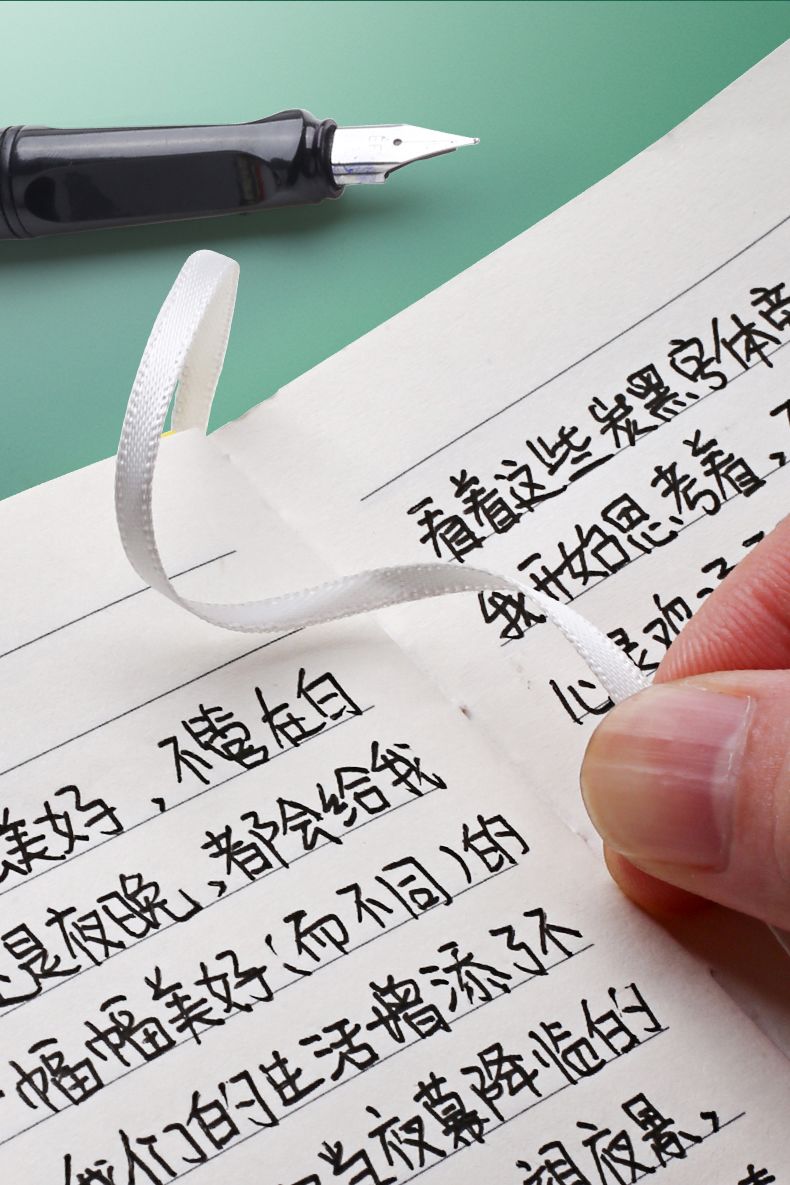 美好，不管在白
是夜晚，都会给我
幅幅美好（而不同）的
我们的生活增添了不
当夜幕降临的
夜景，
看着这些炭黑字体
我开始思考着，
心